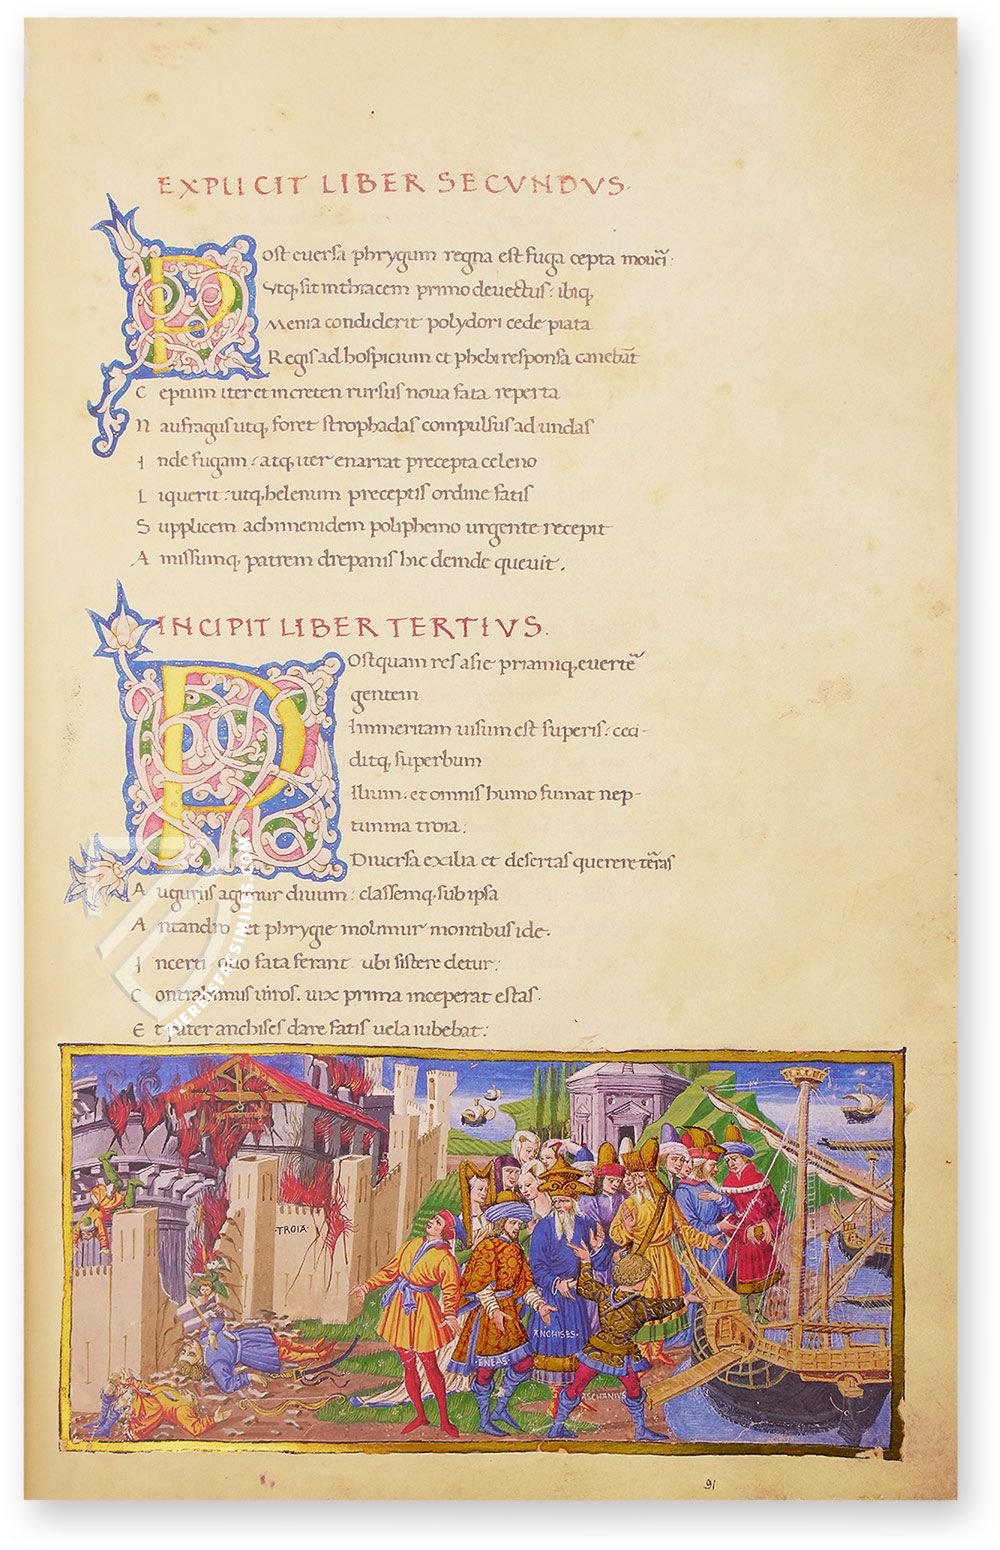 EXPLICIT LIBER SECVNDVS.
Post euersa phrygum regna est fuga cepta moueri:
Vtq, sit inthracem primo deuectus: ibiq,
Menia condiderit polydori cede piata
Regis ad hospicium et phebi responsa canebat
Ceptum iter et in creten rursus noua fata reperta
Naufragus utq, foret strophadas compulsus ad undas
Inde fugam: atq, iter enarrat precepta celeno
Liquerit: utq, helenum preceptis ordine fatis
Supplicem achimenidem poliphemo urgente recepit
Amissumq, patrem drepanis hic deinde queuit.
INCIPIT LIBER TERTIVS.
Postquam res asie priamiq, euertere
gentem
Immeritam uisum est superis: ceci-
ditq, superbum
Ilium: et omnis humo fumat nep-
tunnia troia:
Diuersa exilia et desertas querere terras
Auguriis agimur diuum: classemq, sub ipsa
Antandro et phrygie molimur montibus ide:
Incerti quo fata ferant ubi sistere detur:
Contrahimus uiros. uix prima inceperat estas.
Et pater anchises dare fatis uela iubebat:
TROIA
ENEAS
ANCHISES
ASCHANIVS
91
ZIEREISFACSIMILES.COM